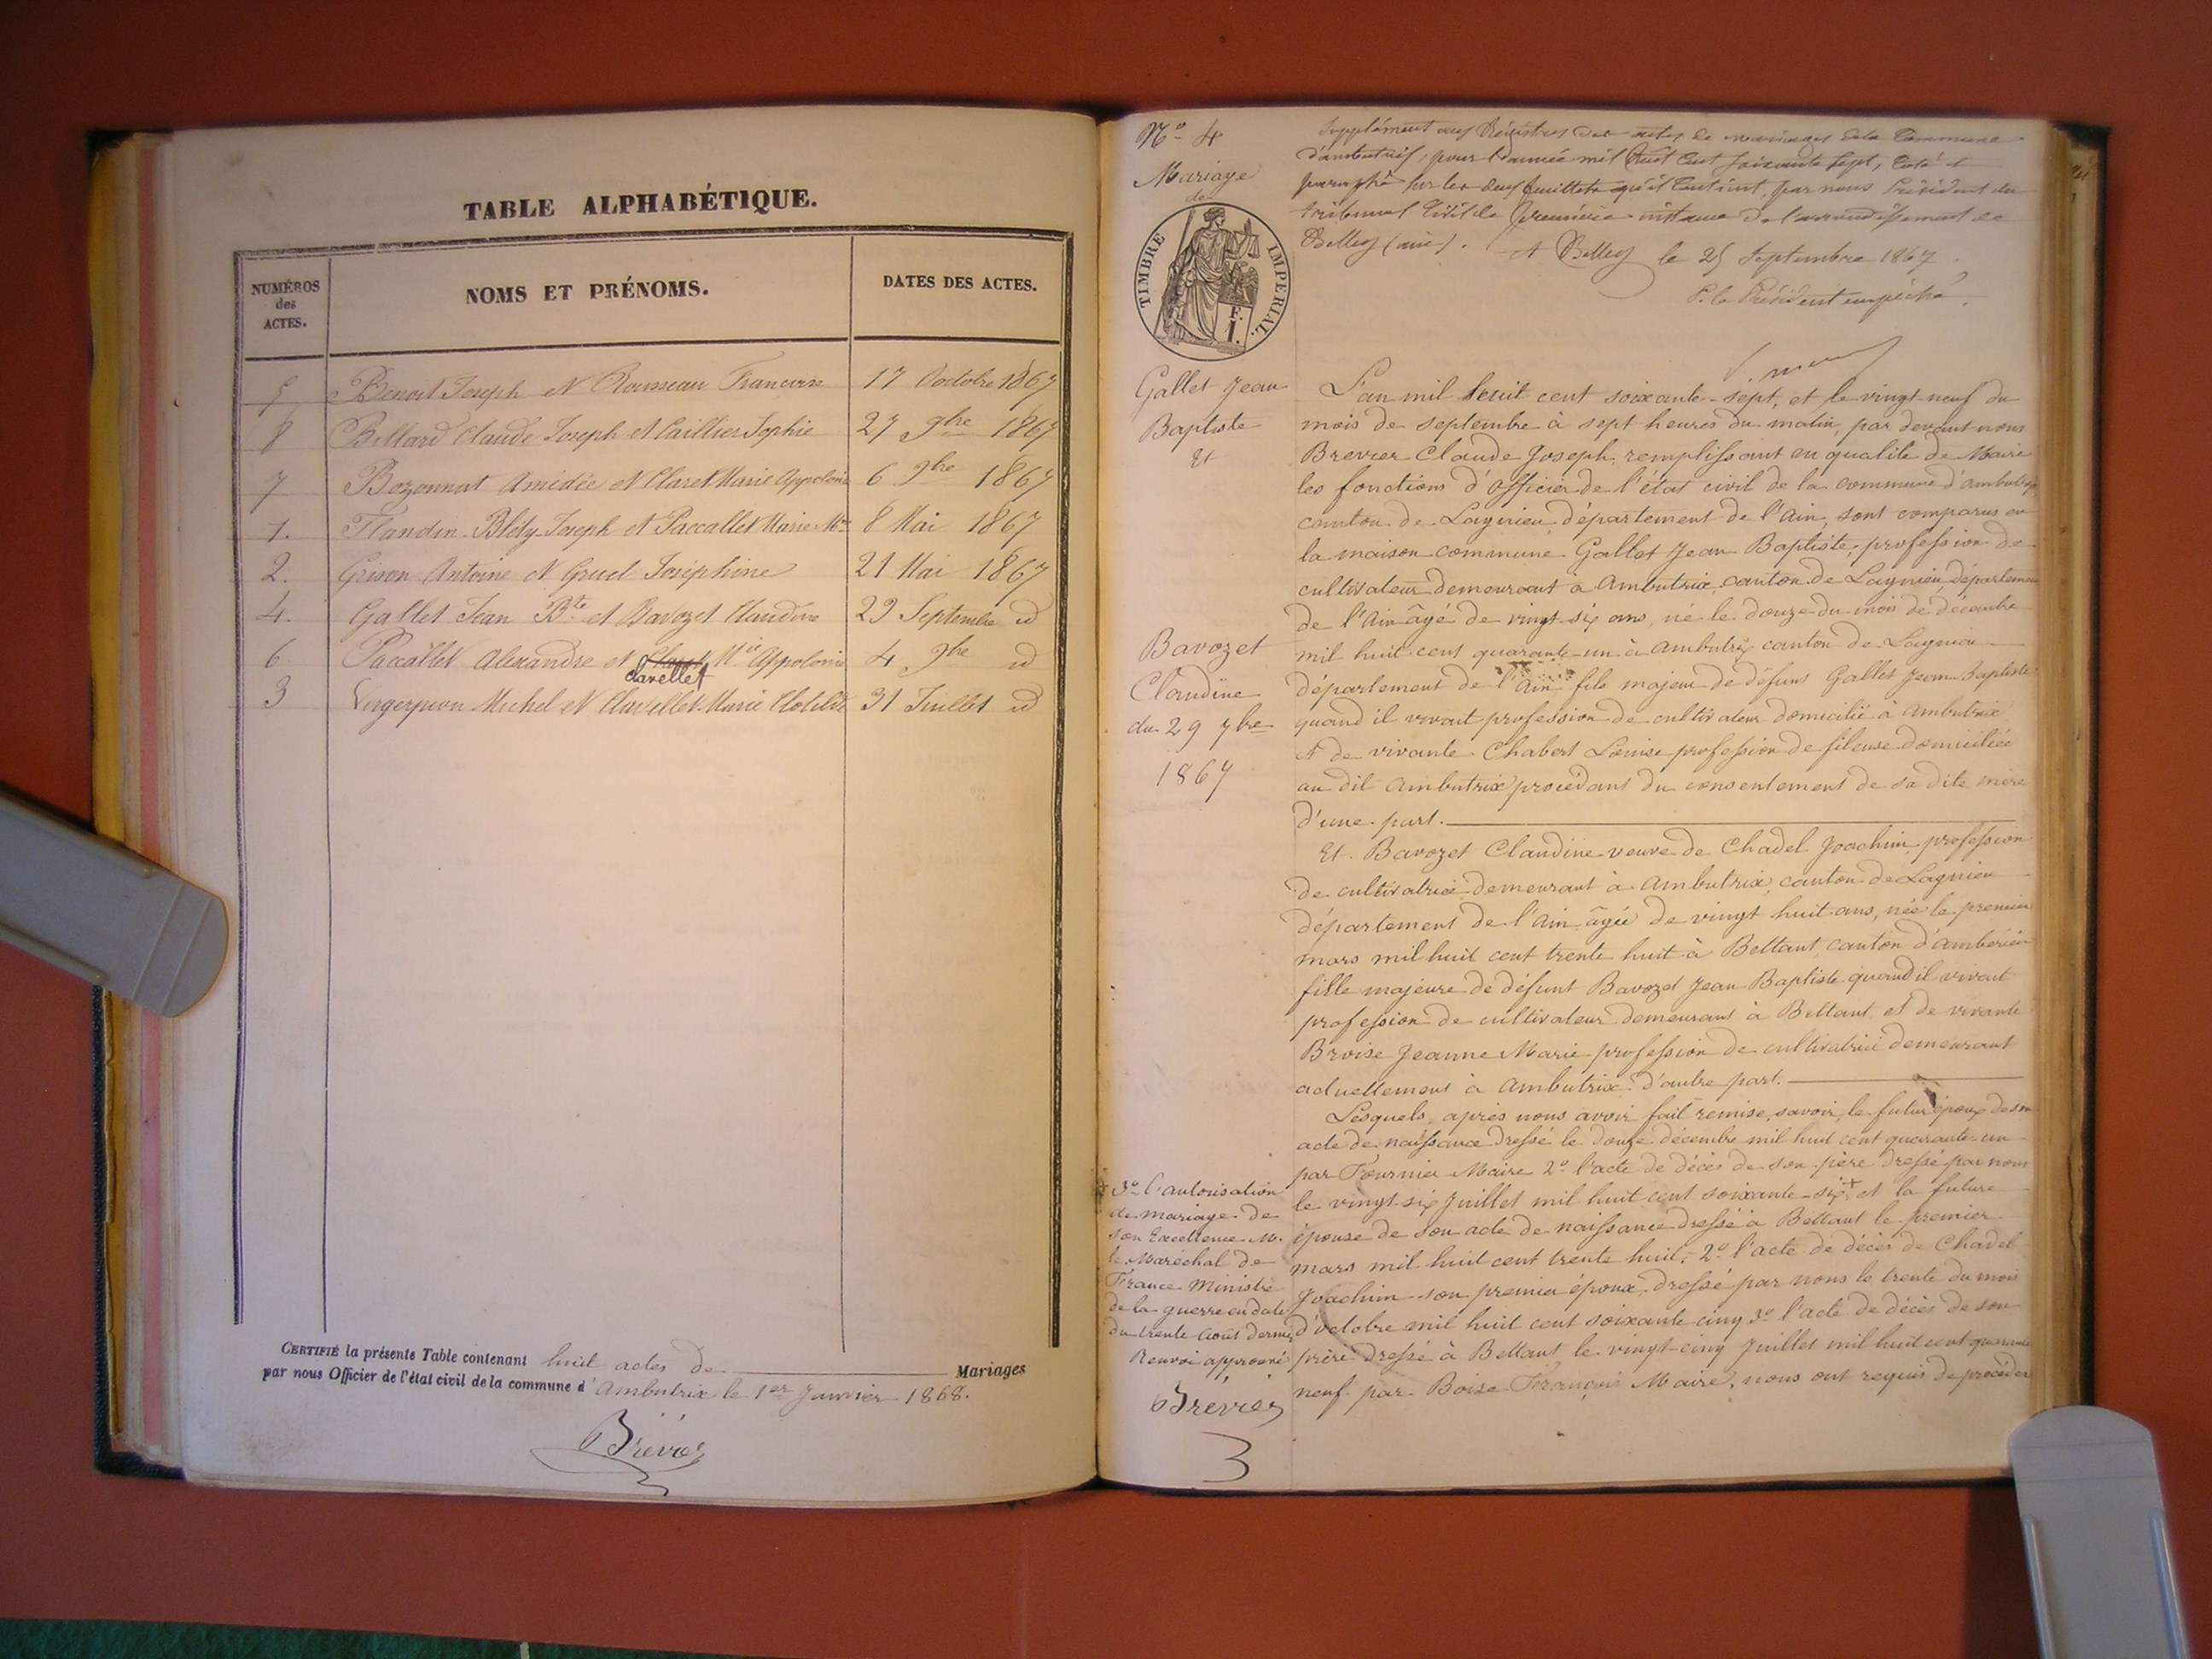 TABLE ALPHABÉTIQUE.
NUMÉROS des ACTES.
NOMS ET PRÉNOMS.
DATES DES ACTES.
5 Benoit Joseph et Rousseau Francoise 17 Octobre 1867
8 Billard Claude Joseph et Caillier Sophie 27 9bre 1867
7 Bozonnat Amédée et Claret Marie Appolonie 6 9bre 1867
1. Flandin-Bléty Joseph et Paccallet Marie Mte 8 Mai 1867
2. Grison Antoine et Gruel Joséphine 21 Mai 1867
4. Gallet Jean Bte et Bavozet Claudine 29 Septembre id
6 Paccallet Alexandre et Claret Mie Appolonie 4 9bre id
Clavellet
3 Vingerpuon Michel et Clavellet Marie Clotilde 31 Juillet id
CERTIFIÉ la présente Table contenant huit actes de Mariages
par nous Officier de l'état civil de la commune d'Ambutrix le 1er Janvier 1868.
Brévier
No 4
Mariage
de
TIMBRE IMPERIAL.
F.
1.
Gallet Jean
Baptiste
Et
Bavozet
Claudine
du 29 7bre
1867
Supplément aux Régistres des actes de mariages de la Commune
d'ambutrix, pour l'année mil huit Cent soixante sept, Coté et
paraphé sur les deux feuillets qu'il Contient, par nous Président du
tribunal Civil de première instance de l'arrondissement de
Belley (ain). A Belley le 25 Septembre 1867.
P. le Président empêché,
L'an mil huit cent soixante-sept, et le vingt-neuf du
mois de septembre à sept heures du matin, par devant nous
Brevier Claude Joseph, remplissant en qualité de Maire
les fonctions d'officier de l'état civil de la commune d'ambutrix
canton de Lagnieu, département de l'Ain, sont comparus en
la maison commune Gallet Jean Baptiste, profession de
cultivateur demeurant à Ambutrix, canton de Lagnieu, département
de l'Ain âgé de vingt-six ans, né le douze du mois de décembre
mil huit cent quarante-un à Ambutrix canton de Lagnieu
département de l'Ain fils majeur de défunt Gallet Jean Baptiste
quand il vivait profession de cultivateur domicilié à Ambutrix
et de vivante Chabert Louise profession de fileuse domiciliée
au dit Ambutrix procédant du consentement de sa dite mère
d'une part.
Et Bavozet Claudine veuve de Chadel Joachim, profession
de cultivatrice demeurant à Ambutrix, canton de Lagnieu
département de l'Ain, âgée de vingt huit ans, née le premier
mars mil huit cent trente huit à Bettant, canton d'Ambérieu
fille majeure de défunt Bavozet Jean Baptiste quand il vivait
profession de cultivateur demeurant à Bettant et de vivante
Broise Jeanne Marie profession de cultivatrice demeurant
actuellement à Ambutrix d'autre part.
Lesquels, après nous avoir fait remise, savoir, le futur époux de son
acte de naissance dressé le douze décembre mil huit cent quarante-un
par Fournier Maire 2o l'acte de décès de son père dressé par nous
le vingt-six Juillet mil huit cent soixante-six + et la future
épouse de son acte de naissance dressé à Bettant le premier
mars mil huit cent trente huit, 2o l'acte de décès de Chadel
Joachim son premier époux, dressé par nous le trente du mois
d'octobre mil huit cent soixante cinq 3o l'acte de décès de son
père dressé à Bettant le vingt-cinq Juillet mil huit cent quarante
neuf par Boise François Maire, nous ont requis de procéder
+ 3o l'autorisation
de mariage de
son Excellence M.
le Maréchal de
France Ministre
de la guerre en date
du trente août dernier
Renvoi approuvé
Brevier